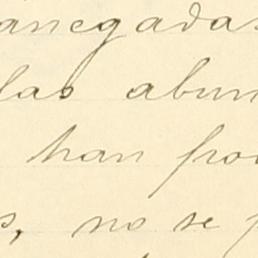 anegadas
las abun
han pod
s, no se p